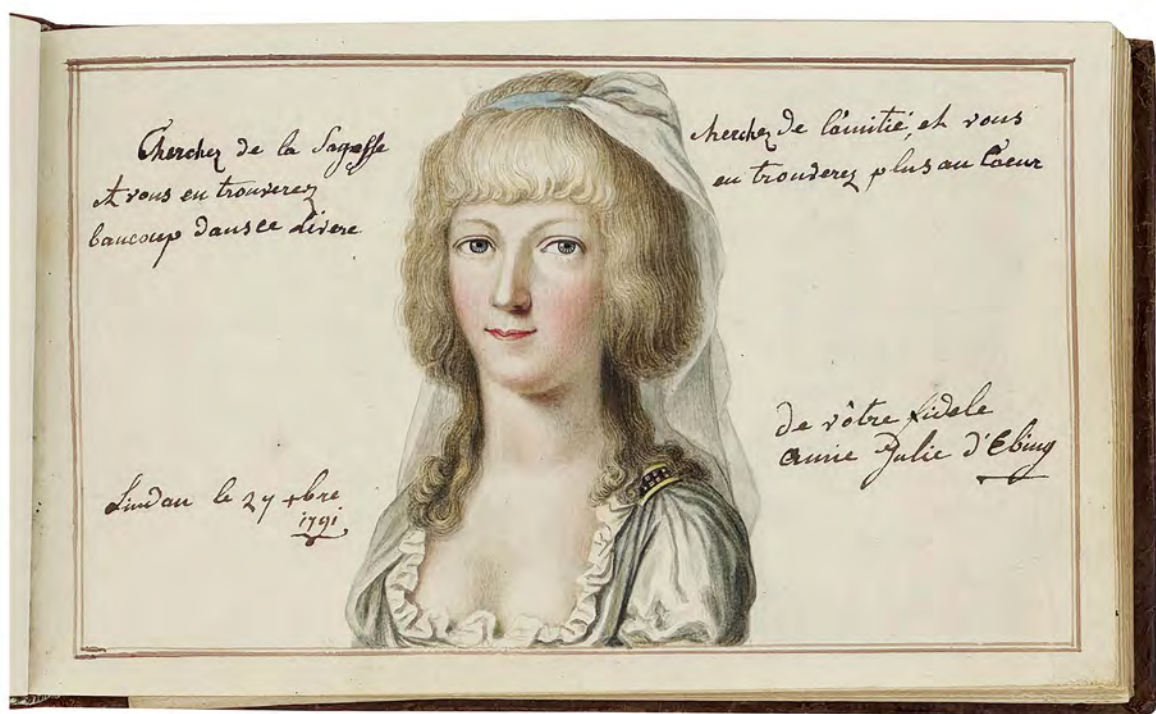 Cherchez de la Sagesse
et vous en trouverez
baucoup dans ce livere
cherchez de l'amitié, et vous
en trouverez plus au Coeur
de vôtre fidele
amie Julie d'Ebing
Lindau le 27 +bre
1791